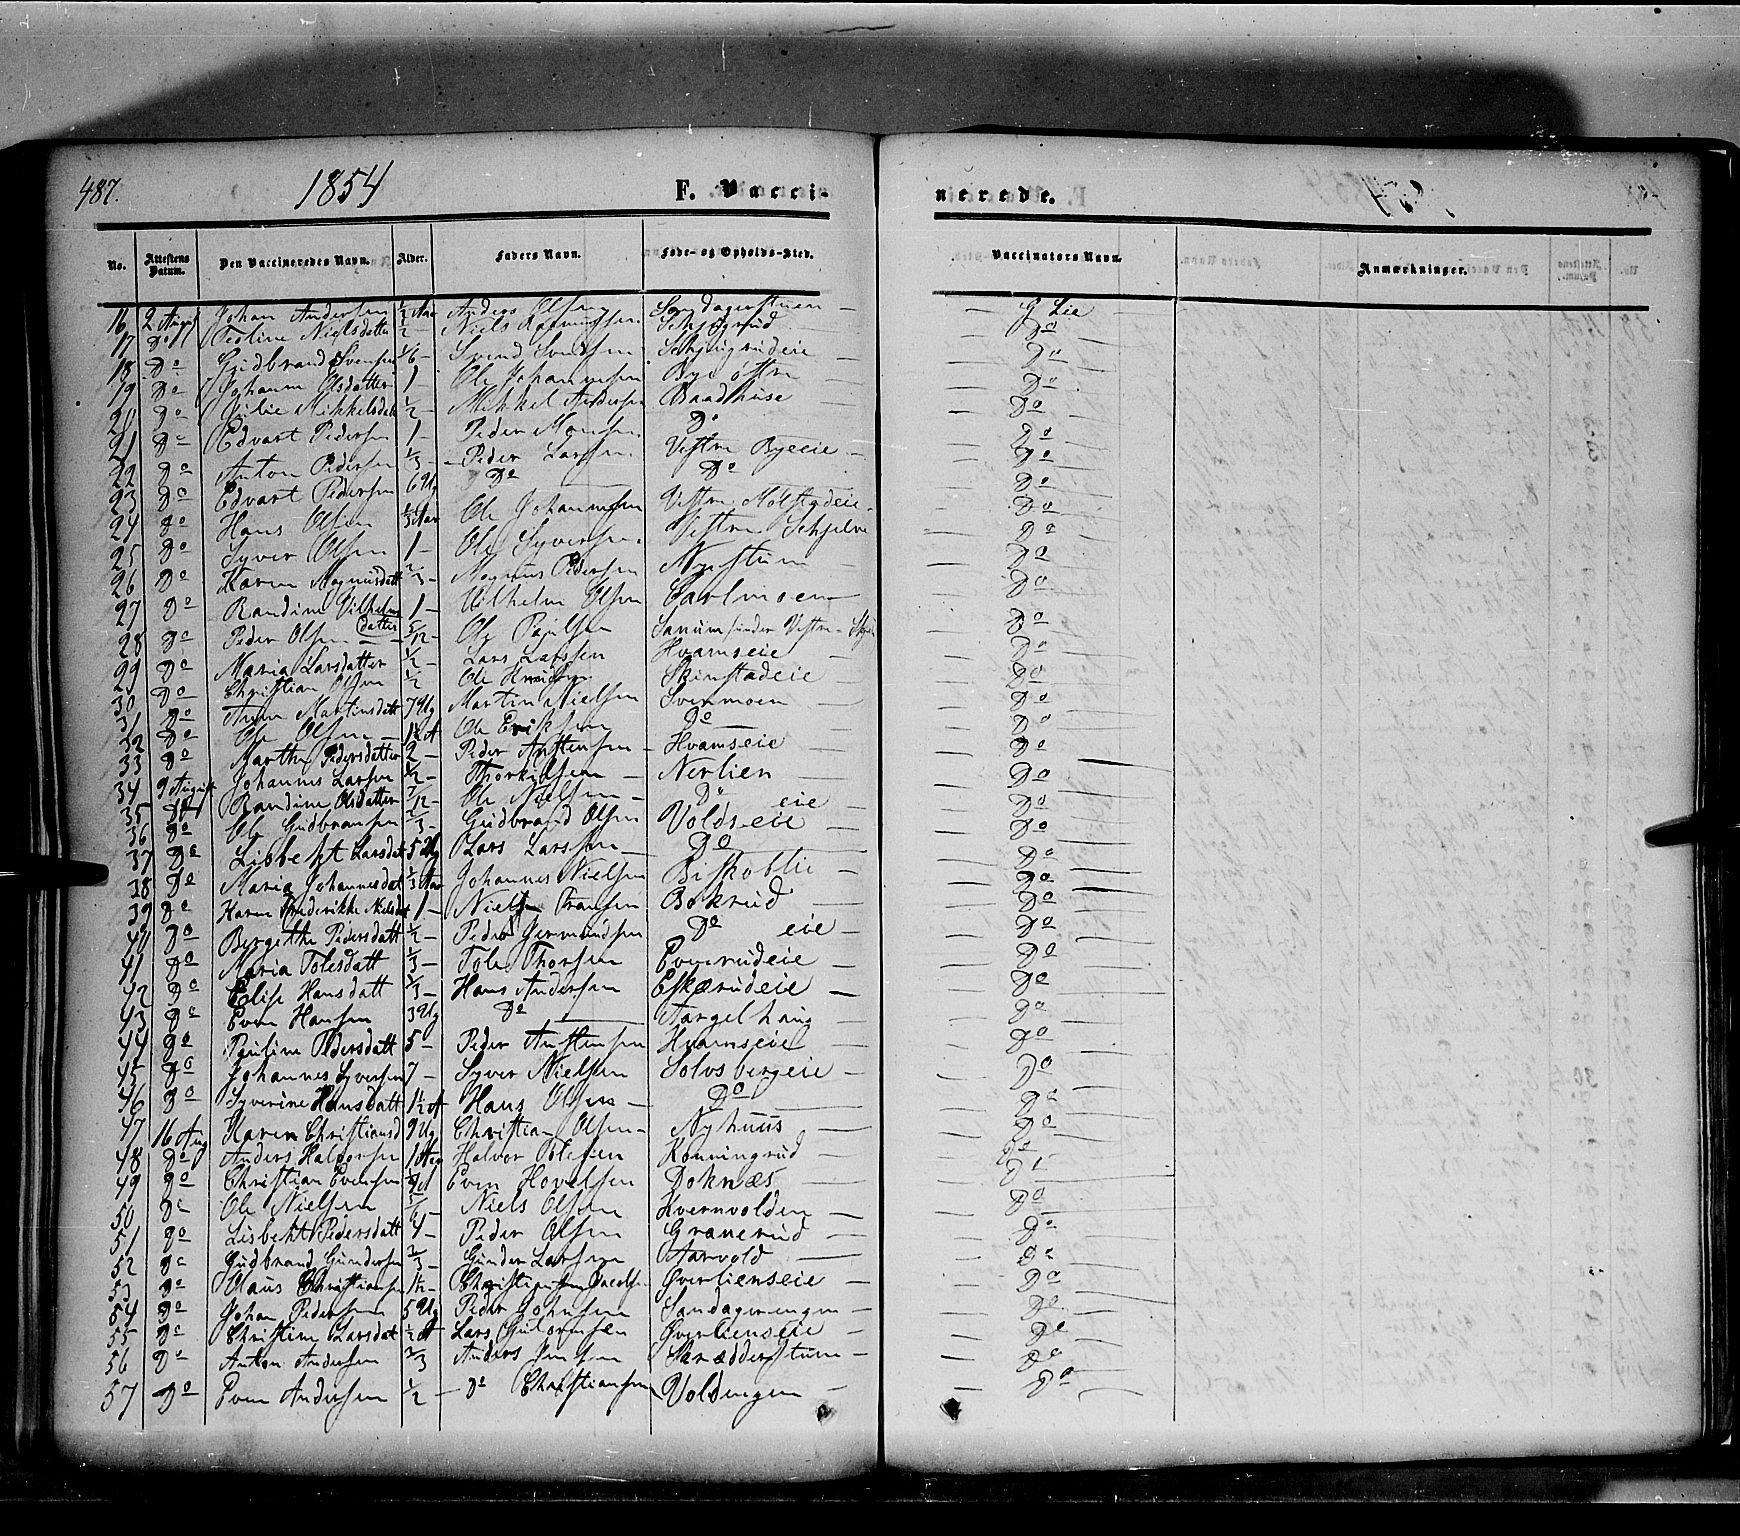 487.
1854
F. Vacci-
nerede.
No. Attestens Datum. Den Vaccineredes Navn. Alder. Faders Navn. Føde- og Opholds-Sted. Vaccinators Navn. Anmærkninger.
16 2 August Johan Andersen ½ Aar Anders Olsen — G Lie
17 Do Nielsdatter ½ — Niels Do
18 Do Gudbrand Svensen — Svend Do
19 Do Johanne Olsdatter 1 — Ole Johannesen Bye østre — Do
20 Do Julie Mikkelsdatt ½ — Mikkel Andersen Baadhuse — Do
21 Do Edvart Pedersen 1 — Peder Monsen Do Do
22 Do Anton Pedersen ⅓ — Peder Larsen Vestre Byeeie — Do
23 Do Edvart Pedersen 6 Ug Do Do Do
24 Do Hans Olsen Aar Ole Johannesen Vestre Do
25 Do Syver Olsen 1 — Ole Syversen Vestre Do
26 Do Karen Magnusdatt ⅔ — Magnus Pedersen Nystuen Do
27 Do Randine Vilhelmsdatter 1 — Vilhelm Olsen Carlmoen — Do
28 Do Peder Olsen 5/12 — Ole under Vestre Do
29 Do Maria Larsdatter ½ — Lars Larsen Hvamseie — Do
30 Do Christian Olsen ½ Ole — Do
31 Do Anne Martinsdatt 7 Ug Martin Nielsen Svenmoen — Do
32 Do Ole Olsen — 1½ A Ole Eriksen Do — Do
33 Do Marthe Pedersdatter 2 — Peder Anstensen — Hvamseie Do
34 9 August Johannes Larsen ½ — — Nerlien — Do
35 Do Randine Olsdatter 7/12 — Ole Nielsen — Do eie — Do
36 Do Ole Gudbransen ⅔ — Gudbrand Olsen Voldseie — Do
37 Do Lisbeht Larsdat 5 Ug Lars Larsen — Do Do
38 Do Maria Johannesdat ⅓ Aar Johannes Nielsen Biskoblie — Do
39 Do Karen Frederikke Nielsdat 1 — Niels Fransen Bokrud — Do
40 Do Bergethe Pedersdatt ½ — Peder Germundsen Do eie — Do
41 Do Maria Tolesdatt ⅓ — Tole Thorsen — Do
42 Do Elise Hansdatt ⅓ — Hans Andersen Eskærudeie — Do
43 Do Even Hansen 3 Ug Do Do
44 Do Pauline Pedersdatt 5 — Peder Anstensen Hvamseie — Do
45 Do Johannes Syversen 7 — Syver Nielsen Solvsbergeie — Do
46 Do Syverine Hansdatt 1½ A Hans Olsen — Do Do
47 16 Aug Karen Christiansd 9 Ug Christian Olsen — Nyhuus — Do
48 Do Anders Halvorsen 1 Aar Halvor Tolesen Konningrud — Do
49 Do Christian Evensen Even Hovelsen Doknæs — Do
50 Do Ole Nielsen Niels Olsen Kvernvolden — Do
51 Do Lisbeht Pedersdatt 4 — Peder Olsen Granerud — Do
52 Do Gudbrand Gundersen ⅔ — Gunder Larsen Aarvold — Do
53 Do Claus Christiansen 1½ — Christian Jacobsen Øverlienseie — Do
54 Do Johan Pedersen 5 Ug Peder Johnsen Sandagerengen — Do
55 Do Christine Larsdat ½ A Lars Gulormsen Øverlienseie — Do
56 Do Anton Andersen ⅔ Anders Jensen Skrædderstuen — Do
57 Do Even Andersen ½ — Do Christiansen Voldengen — Do